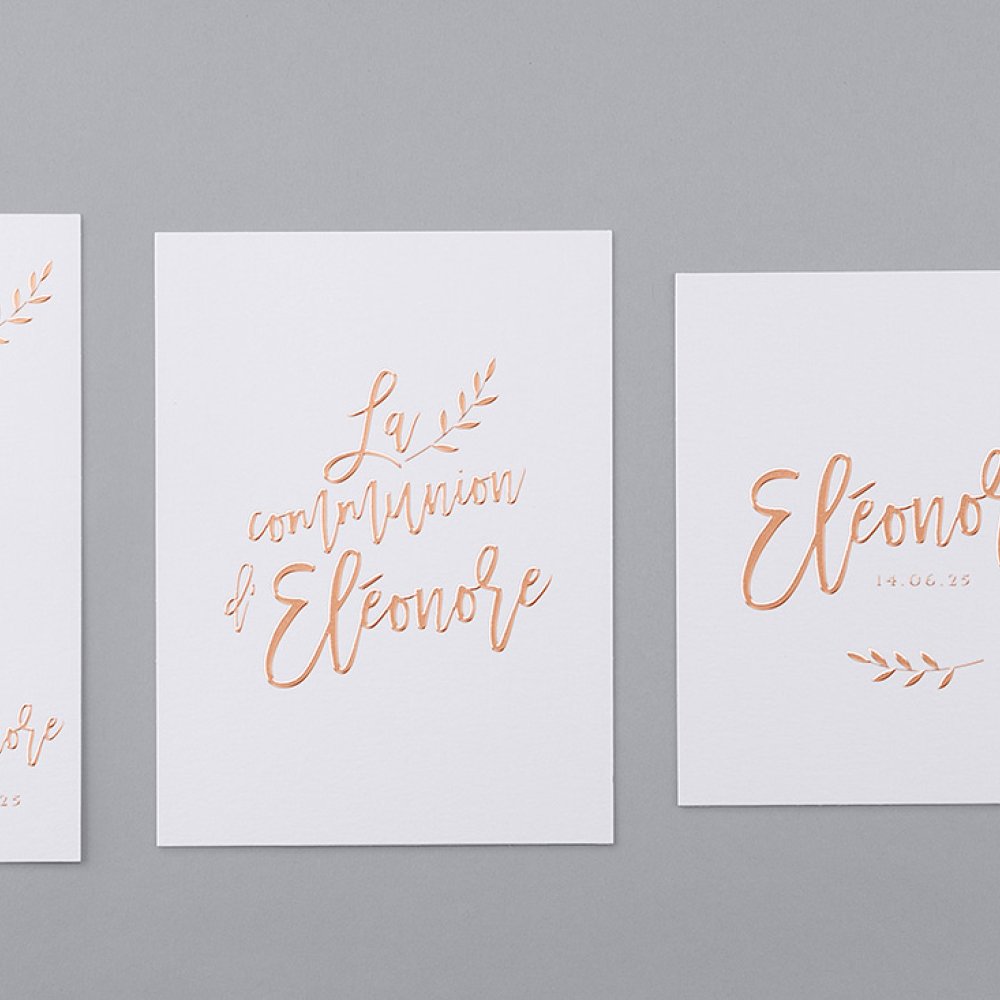 ore
25
La
communion
d'Eléonore
Eléonor
14.06.25